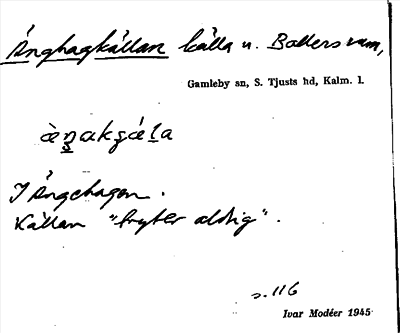 Änghagkällan källa u. Ballersrum,
Gamleby sn, S. Tjusts hd, Kalm. l.
I Änghagen.
Källan "tryter aldrig".
s. 116
Ivar Modéer 1945